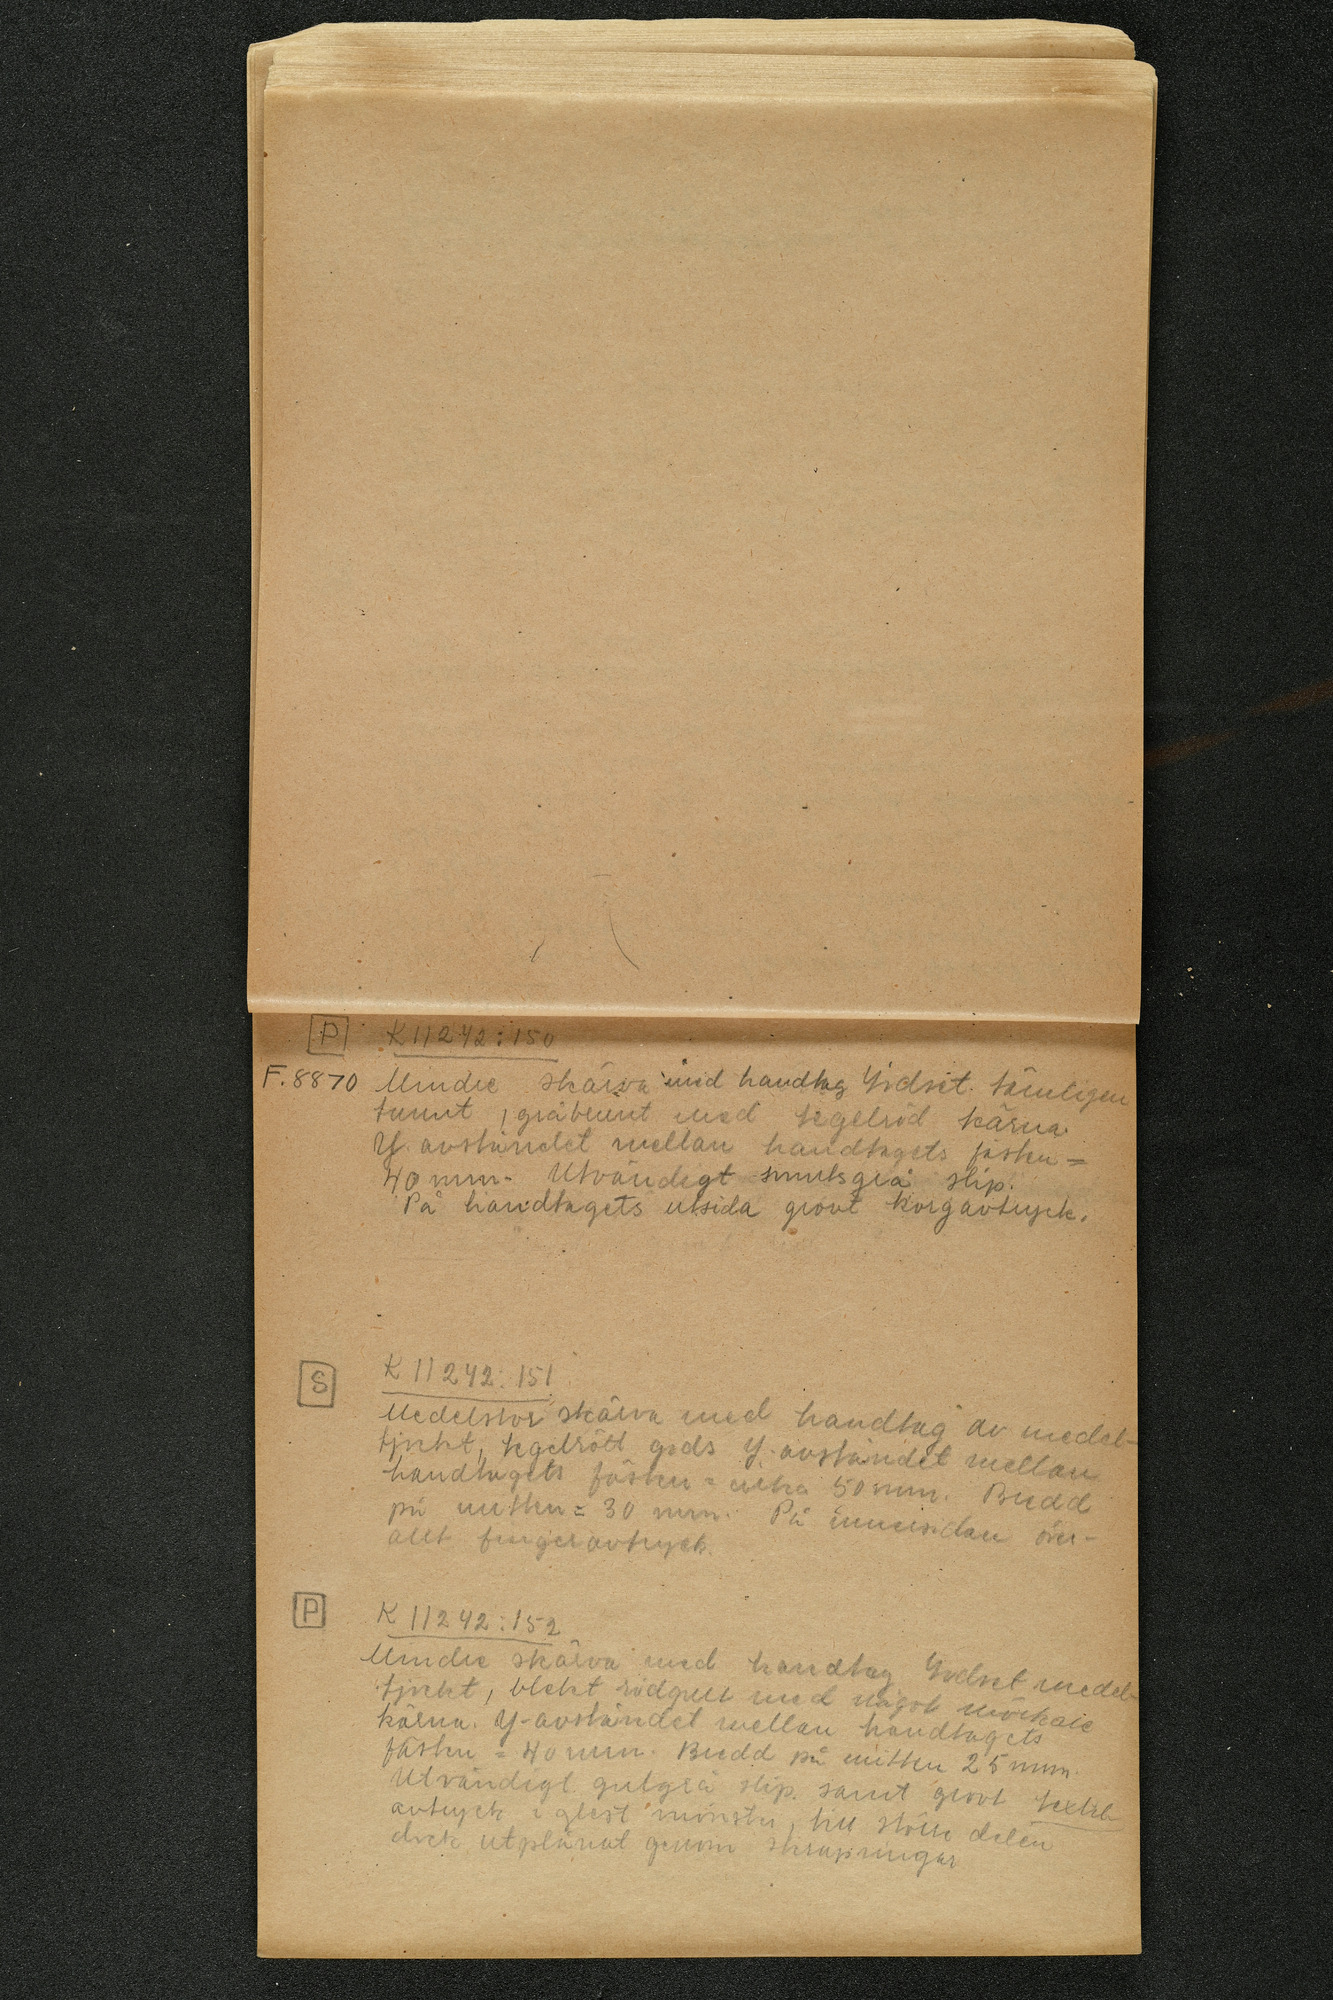 P K 11242:150
F.8870 Mindre skärva med handtag Godset tämligen
tunnt, gråbrunt med tegelröd kärna
Y. avståndet mellan handtagets fästen =
40 mm. Utvändigt smutsgrå slip.
På handtagets utsida grovt korgavtryck.
S K 11242:151
Medelstor skärva med handtag av medel-
tjockt, tegelrött gods Y. avståndet mellan
handtagets fästen = cirka 50 mm. Bredd
på mitten = 30 mm. På innersidan över-
allt fingeravtryck.
P K 11242:152
Mindre skärva med handtag Godset medel-
tjockt, blekt rödgult med något mörkare
kärna. Y-avståndet mellan handtagets
fästen = 40 mm. Bredd på mitten 25 mm.
Utvändigt gulgrå slip. samt grovt textil-
avtryck i glest mönster, till större delen
dock utplånat genom skrapningar